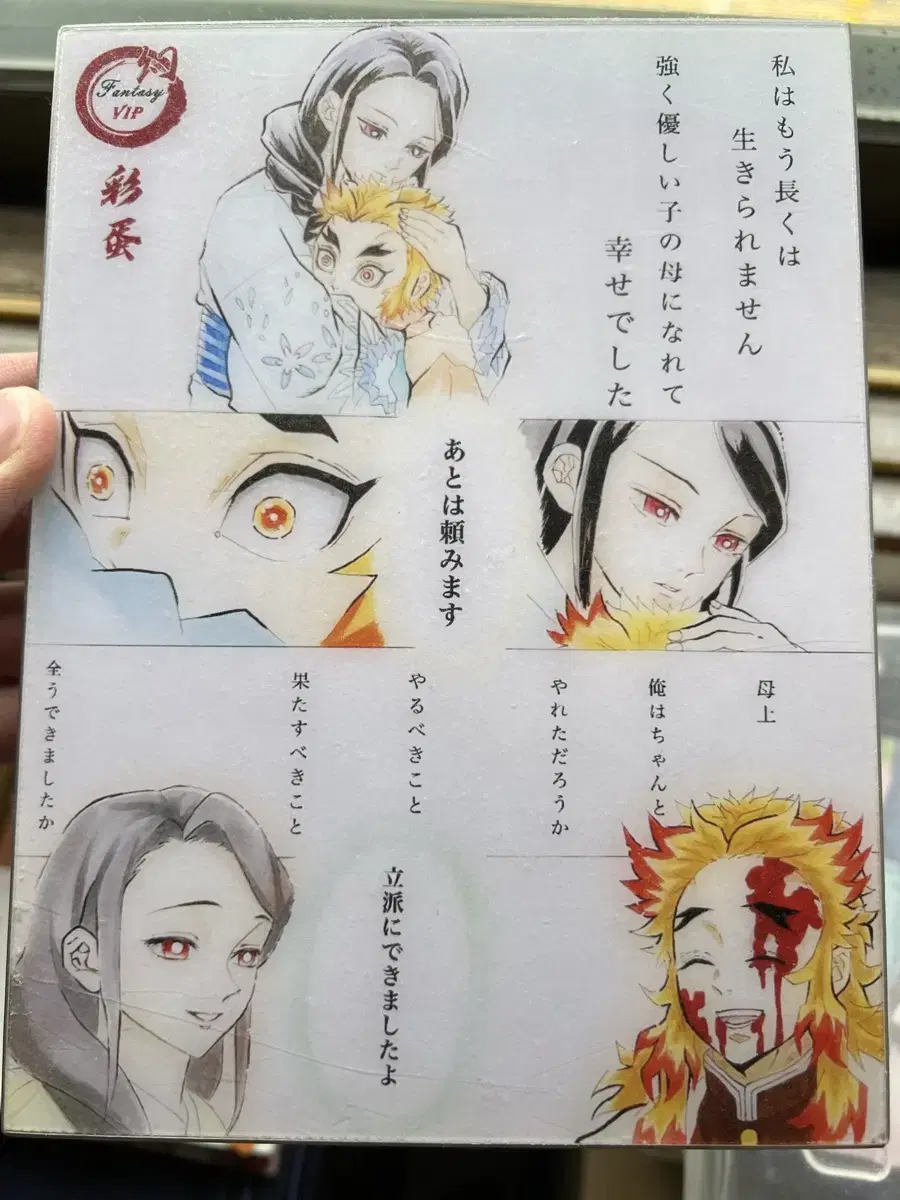 Fantasy
VIP
彩蛋
私はもう長くは
生きられません
強く優しい子の母になれて
幸せでした
あとは頼みます
母上
俺はちゃんと
やれただろうか
やるべきこと
果たすべきこと
全うできましたか
立派にできましたよ